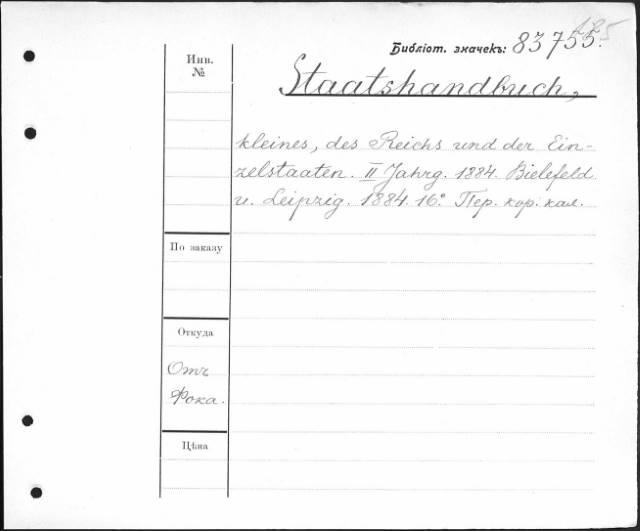 125
Библіот. значекъ: 83755.
Инв.
№
Staatshandbuch,
kleines, des Reichs und der Ein-
zelstaaten. II Jahrg. 1884. Bielefeld
u. Leipzig. 1884. 16°. Пер. кор. кал.
По заказу
Откуда
Отъ
Фока.
Цѣна